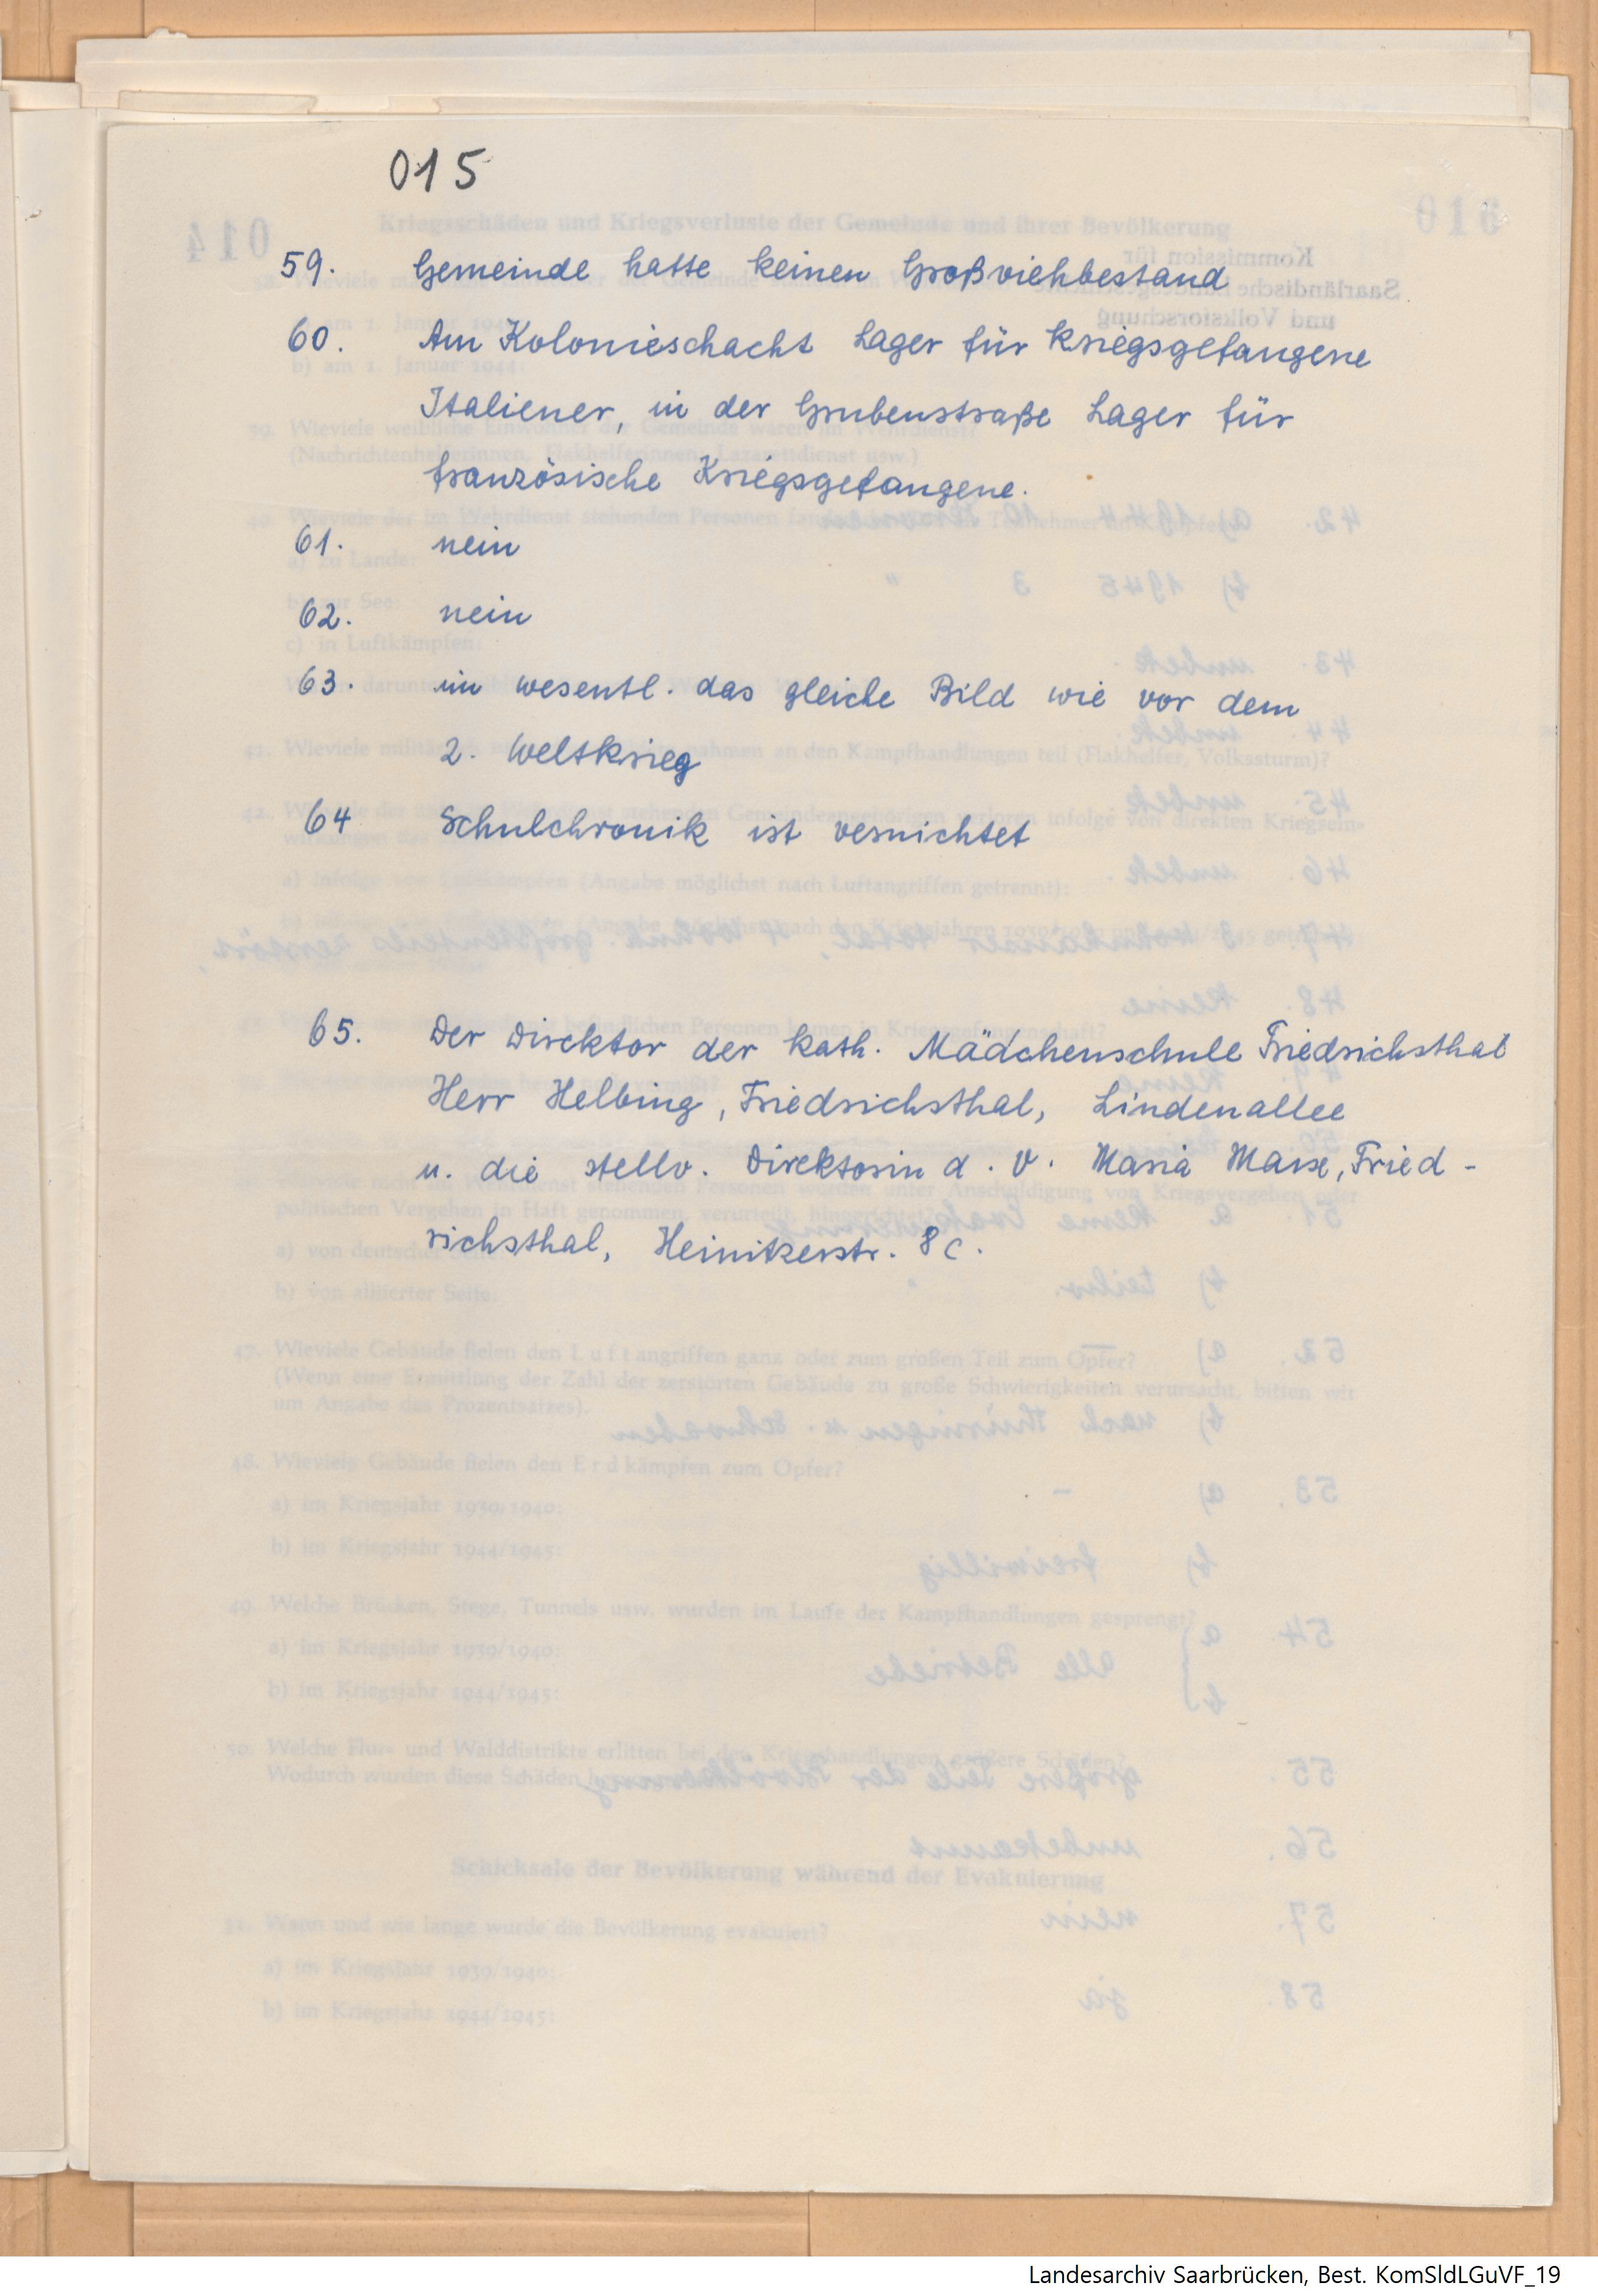 015
59. Gemeinde hatte keinen Großviehbestand
60. Am Kolonieschacht Lager für Kriegsgefangene
Italiener, in der Grubenstraße Lager für
französische Kriegsgefangene.
61. nein
62. nein
63. im wesentl. das gleiche Bild wie vor dem
2. Weltkrieg
64 Schulchronik ist vernichtet
65. Der Direktor der kath. Mädchenschule Friedrichsthal
Herr Helbing, Friedrichsthal, Lindenallee
u. die stellv. Direktorin d. V. Maria Marx, Fried-
richsthal, Heinitzerstr. 8c.
Landesarchiv Saarbrücken, Best. KomSldLGuVF_19